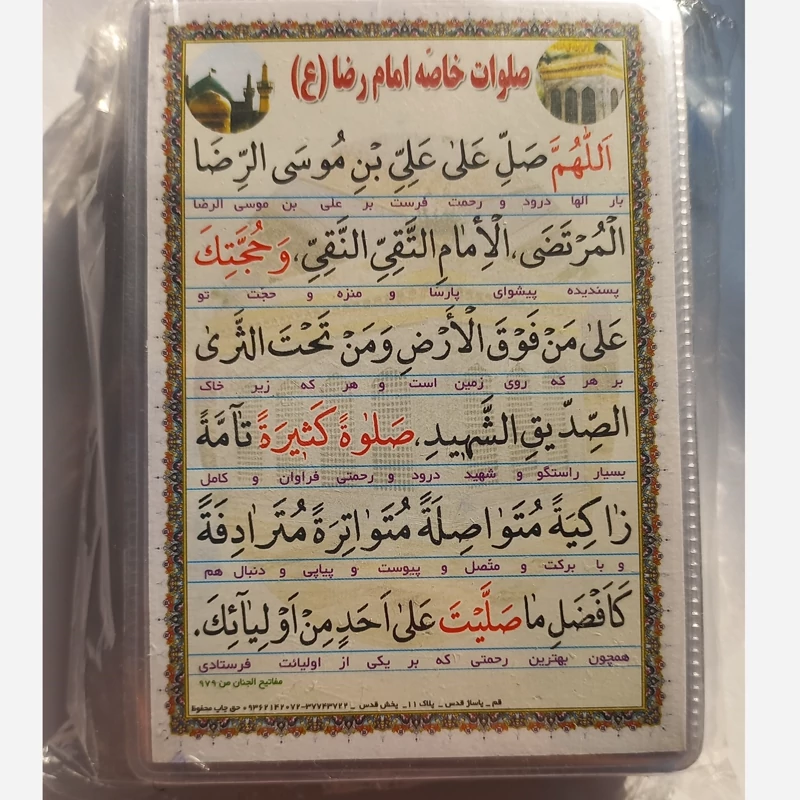 صلوات خاصّه امام رضا (ع)
اَللّٰهُمَّ صَلِّ عَلىٰ عَلِىِّ بْنِ مُوسَى الرِّضَا
بار الها درود و رحمت فرست بر علی بن موسی الرضا
الْمُرْتَضَى، الْأِمٰامِ التَّقِىِّ النَّقِىِّ، وَ حُجَّتِكَ
پسندیده پیشوای پارسا و منزه و حجت تو
عَلىٰ مَنْ فَوْقَ الْأَرْضِ وَ مَنْ تَحْتَ الثَّرىٰ
بر هر که روی زمین است و هر که زیر خاک
الصِّدّيقِ الشَّهيدِ، صَلوٰةً كَثيرَةً تٰآمَّةً
بسیار راستگو و شهید درود و رحمتی فراوان و کامل
زٰاكِيَةً مُتَوٰاصِلَةً مُتَوٰاتِرَةً مُتَرٰادِفَةً
و با برکت و متّصل و پیوست و پیاپی و دنبال هم
كَاَفْضَلِ مٰا صَلَّيْتَ عَلىٰ اَحَدٍ مِنْ اَوْلِيٰآئِكَ.
همچون بهترین رحمتی که بر یکی از اولیائت فرستادی
مفاتیح الجنان ص ۹۷۹
قم _ پاساژ قدس _ پلاک ۱۱_ پخش قدس _ ۳۷۷۴۳۷۲۲-۰۹۳۶۲۱۴۲۰۷۲ حق چاپ محفوظ